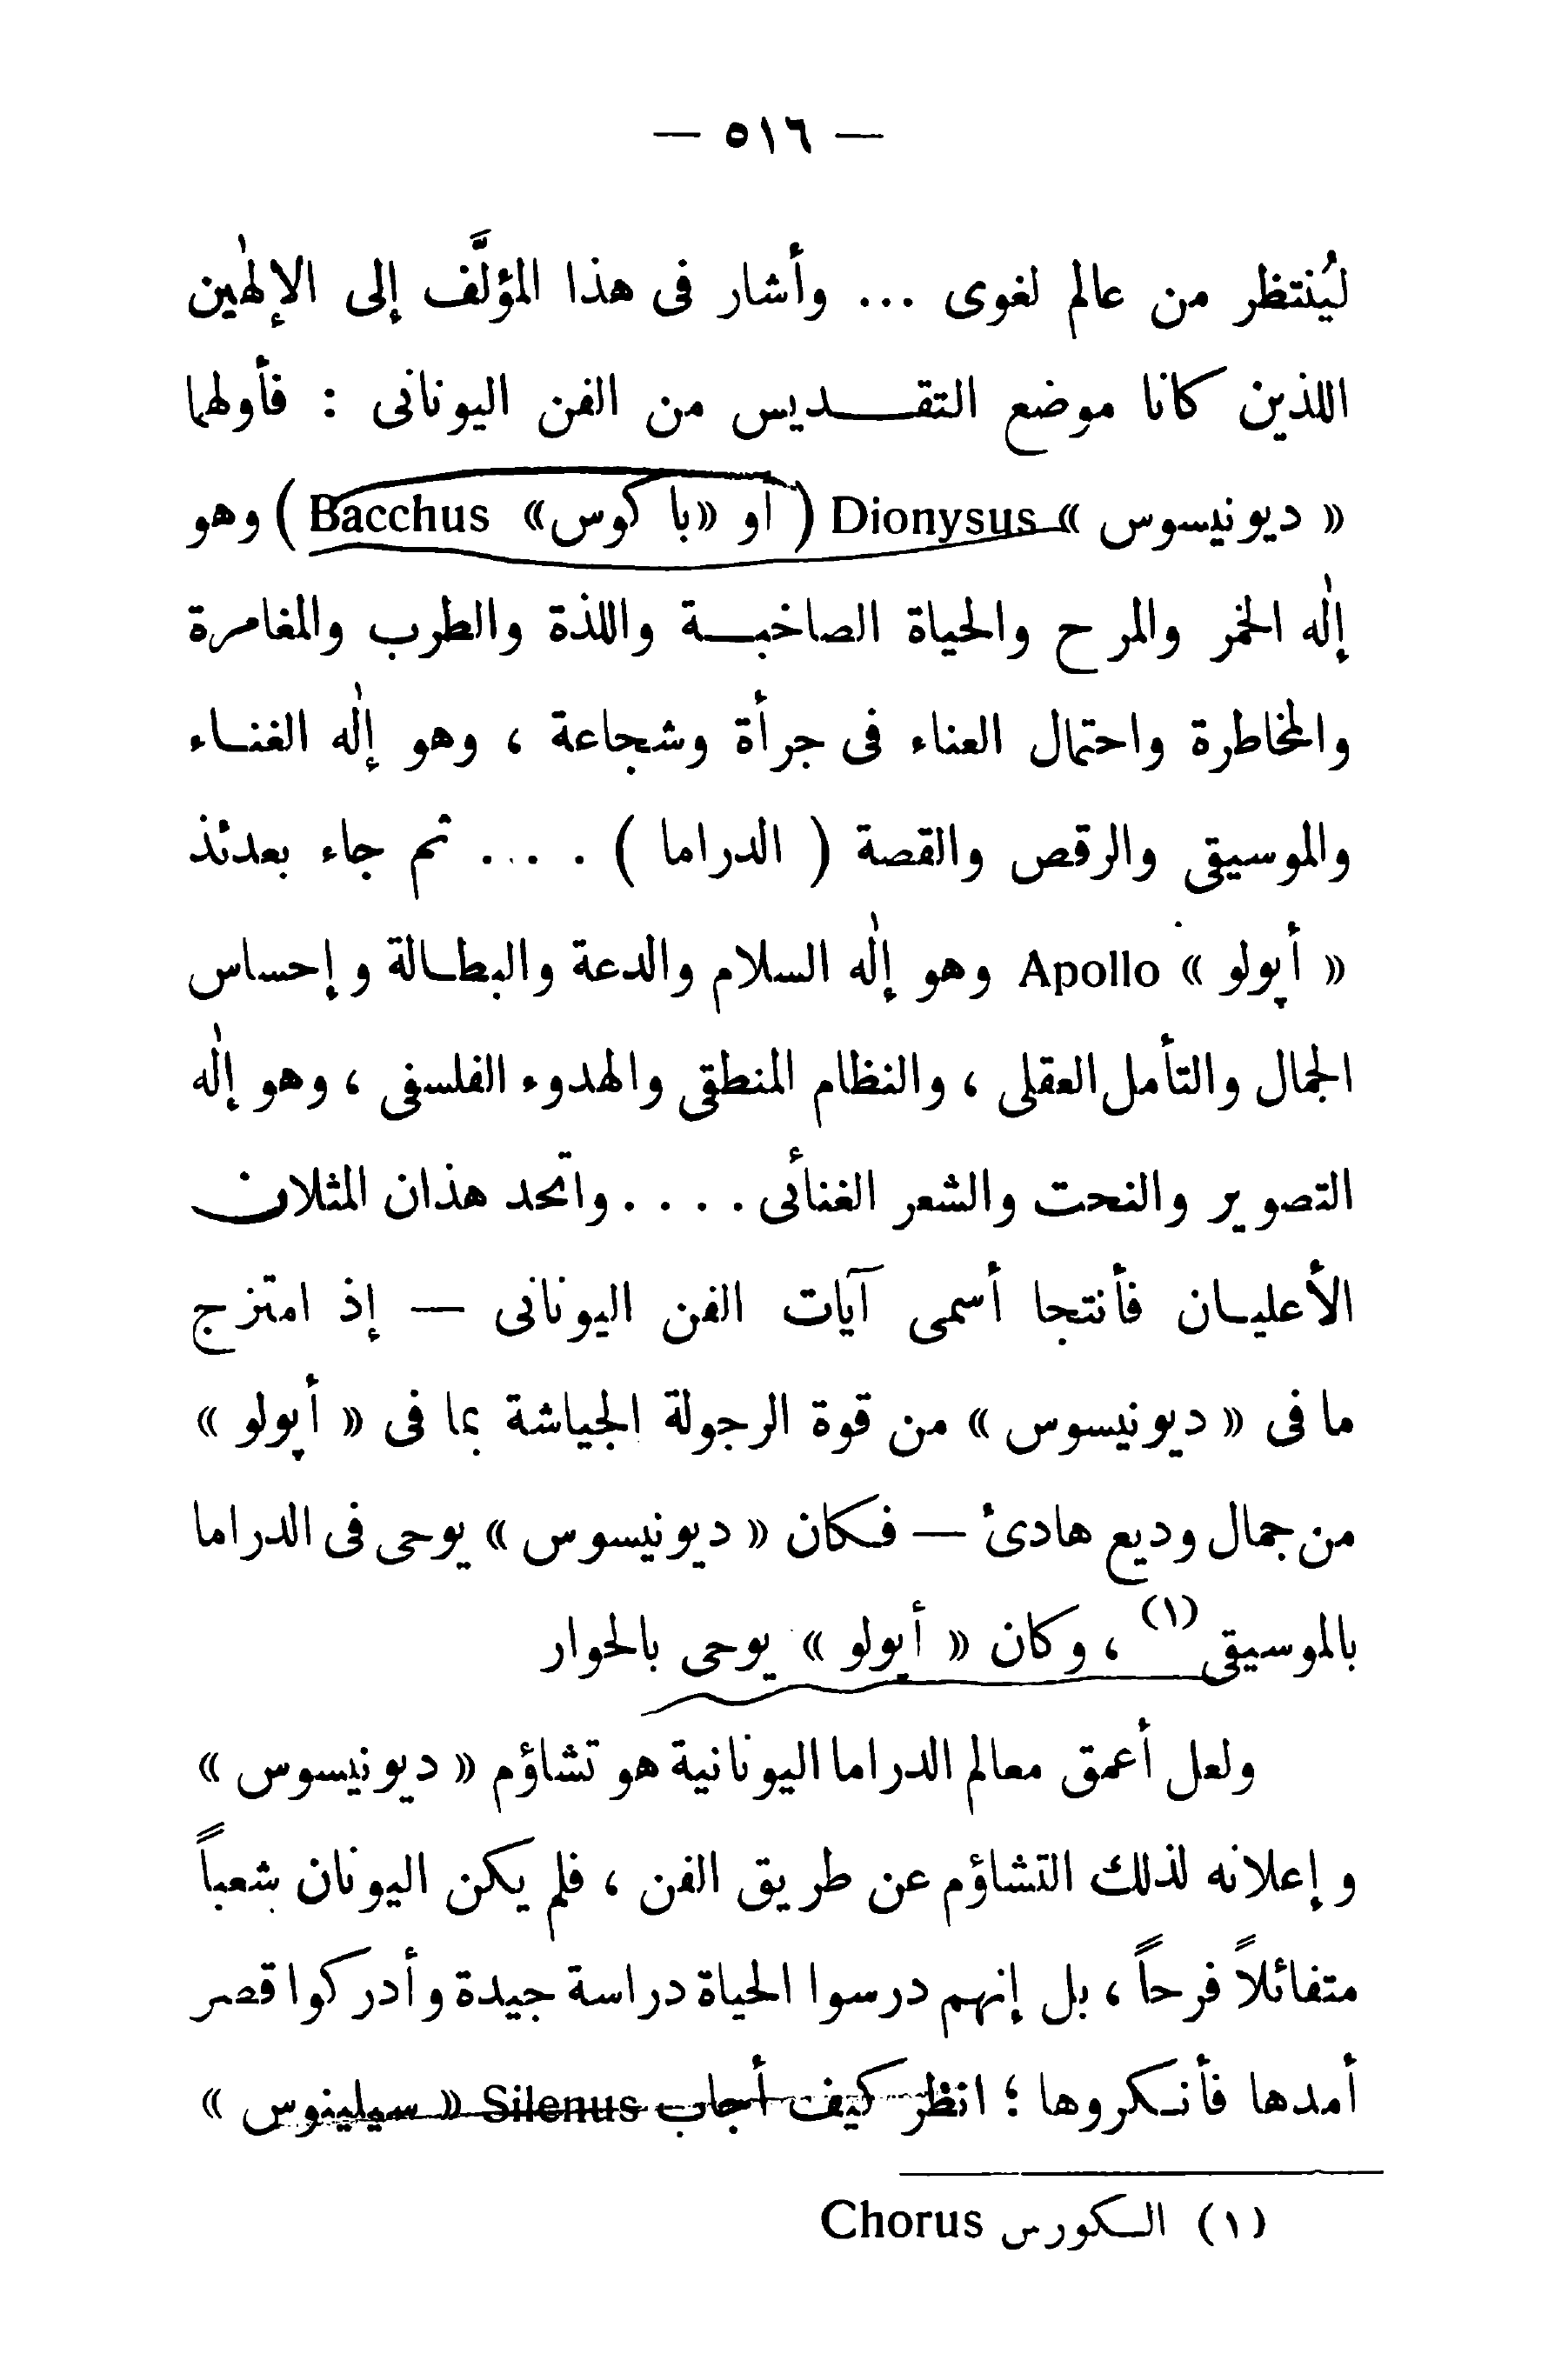 — ٥١٦ —
ليُنتظر من عالم لغوى ... وأشار فى هذا المؤلَّف إلى الإلٰهين
اللذين كانا موضع التقـــديس من الفن اليونانى : فأولهما
« ديونيسوس » Dionysus ( أو «باكوس» Bacchus ) وهو
إلٰه الخمر والمرح والحياة الصاخبـة واللذة والطرب والمغامرة
والمخاطرة واحتمال العناء فى جرأة وشجاعة ، وهو إلٰه الغنـاء
والموسيقى والرقص والقصة ( الدراما ) . ... ثم جاء بعدئذ
« أپولو » Apollo وهو إلٰه السلام والدعة والبطـالة وإحساس
الجمال والتأمل العقلى ، والنظام المنطقى والهدوء الفلسفى ، وهو إلٰه
التصوير والنحت والشعر الغنائى .... واتحد هذان المثلان
الأعليـان فأنتجا أسمى آيات الفن اليونانى — إذ امتزج
ما فى « ديونيسوس » من قوة الرجولة الجياشة بما فى « أپولو »
من جمال وديع هادئ — فـكان « ديونيسوس » يوحى فى الدراما
بالموسيقى(١) ، وكان « أپولو » يوحى بالحوار
ولعل أعمق معالم الدراما اليونانية هو تشاؤم « ديونيسوس »
وإعلانه لذلك التشاؤم عن طريق الفن ، فلم يكن اليونان شعباً
متفائلاً فرحاً ، بل إنهم درسوا الحياة دراسة جيدة وأدركوا قصر
أمدها فأنـكروها ؛ انظر كيف أجاب Silenus « سيلينوس »
(١) الـكورس Chorus